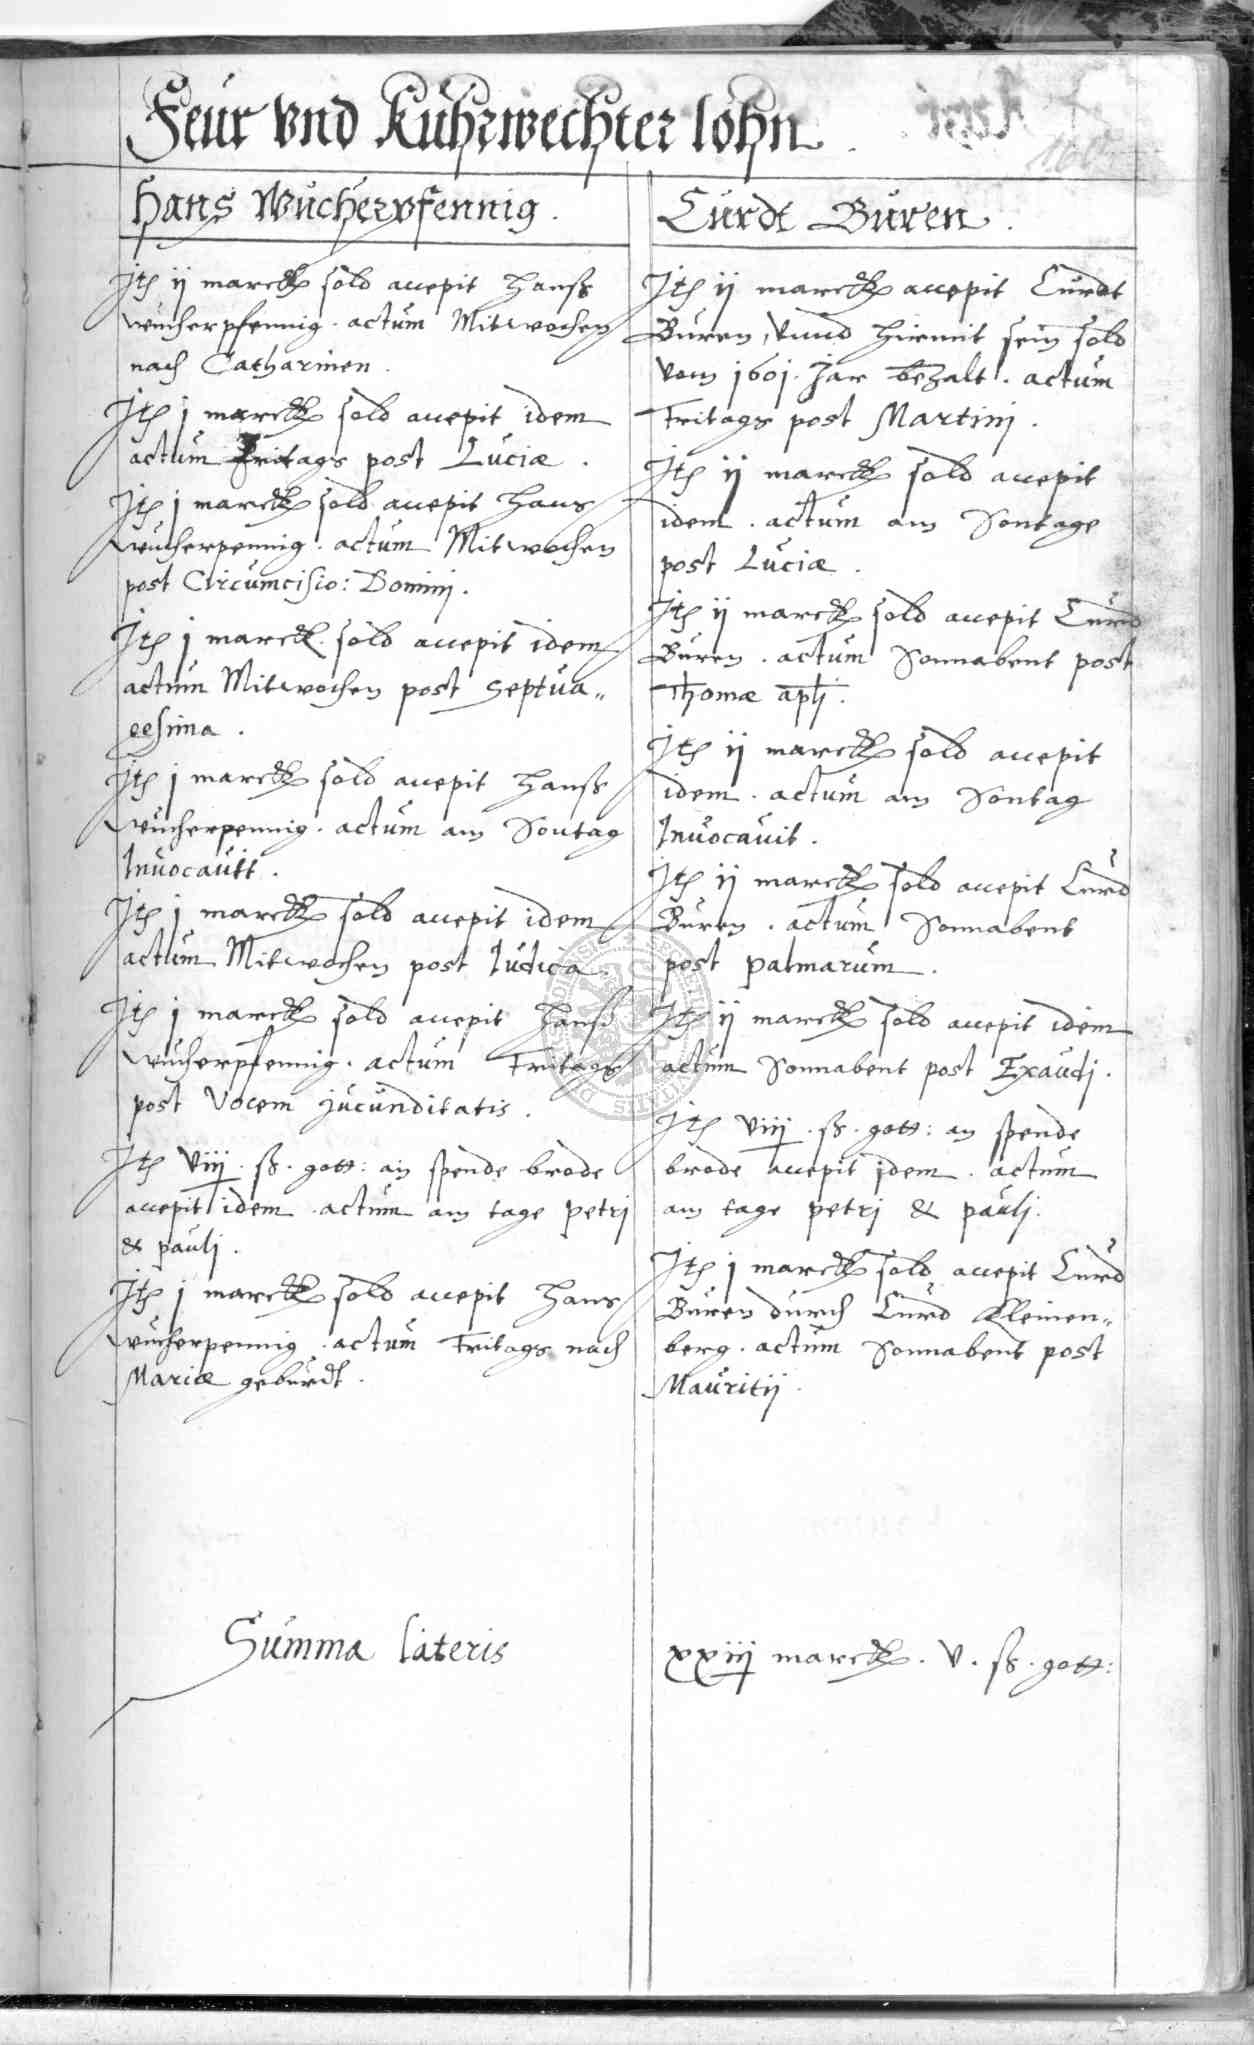 Feur vnd Kuhrwechter lohn.
Hans Wucherpfennig.
Jtē ij marck sold accepit Hanß
wucherpfennig. actum Mitwochen
nach Catharinen.
Jtē j marck sold accepit idem
actum Fritags post Luciæ.
Jtē j marck sold accepit Hans
wucherpennig. actum Mitwochen
post Circumcisio: Dominj.
Jtē j marck. sold accepit idem
actum Mitwochen post Septua„
gesima.
Jtē j marck sold accepit Hanß
wucherpennig. actum am Sontag
Invocavitt.
Jtē j marck sold accepit idem
actum Mitwochen post Iudica.
Jtē j marck sold accepit Hanß
wucherpfennig. actum Fritags
post Vocem jucunditatis.
Jtē viij. ß. gott: an spende brode
accepit idem. actum am tage petrj
& paulj.
Jtē j marck sold accepit Hans
wucherpennig. actum Fritags nach
Mariæ geburdt.
Curdt Buren.
Jtē ij marck accepit Curdt
Buren, vnnd hirmit sein sold
vom 1601. Jar bezalt. actum
Fritags post Martinj.
Jtē ij marck sold accepit
idem. actum am Sontage
post Luciæ.
Jtē ij marck sold accepit Curd
Buren. actum Sonnabent post
Thomæ aplj.
Jtē ij marck sold accepit
idem. actum am Sontag
Invocavit.
Jtē ij marck sold accepit Curd
Buren. actum Sonnabent
post palmarum.
Jtē ij marck sold accepit idem
actum Sonnabent post Exaudj.
Jtē viij. ß. gott: an spende
brode accepit idem. actum
am tage petrj & paulj.
Jtē j marck sold accepit Curd
Buren durch Curd Kleinen„
berg. actum Sonnabent post
Mauritij.
Summa lateris
xxiij marck. v. ß. gott: